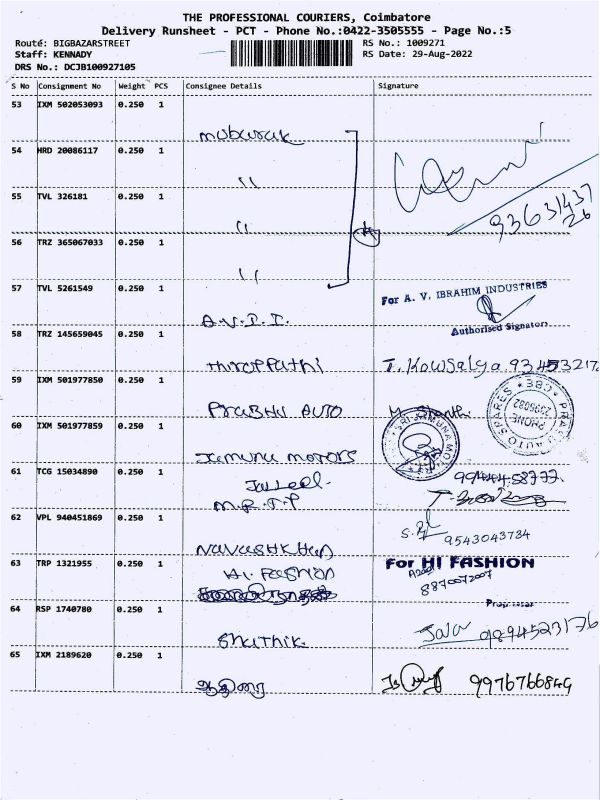 THE PROFESSIONAL COURIERS, Coimbatore
Delivery Runsheet - PCT - Phone No.:0422-3505555 - Page No.:5
Route: BIGBAZARSTREET RS No.: 1009271
Staff: KENNADY RS Date: 29-Aug-2022
DRS No.: DCJB100927105
S No Consignment No Weight PCS Consignee Details Signature
53 IXM 502053093 0.250 1
mubarak
54 HRD 20086117 0.250 1
"
93631437
26
55 TVL 326181 0.250 1
"
56 TRZ 365067033 0.250 1
"
57 TVL 5261549 0.250 1
For A. V. IBRAHIM INDUSTRIES
A.V.I.I.
Authorised Signatory
58 TRZ 145659045 0.250 1
Thiroppathi T. Kowsalya
59 IXM 501977850 0.250 1
Prabhu AUTO
PRABU AUTO SPARES * CBE *
PHONE 2396082
60 IXM 501977859 0.250 1
Jamuna motors
SRI JAMUNA MO
61 TCG 15034890 0.250 1
M.R.T.P
62 VPL 940451869 0.250 1
9543043734
Navashkhan
63 TRP 1321955 0.250 1
For HI FASHION
Hi. Fashion
8870072007
Proprietor
64 RSP 1740780 0.250 1
Shathik. 9894523176
65 IXM 2189620 0.250 1
ஆதிரை 9976766849